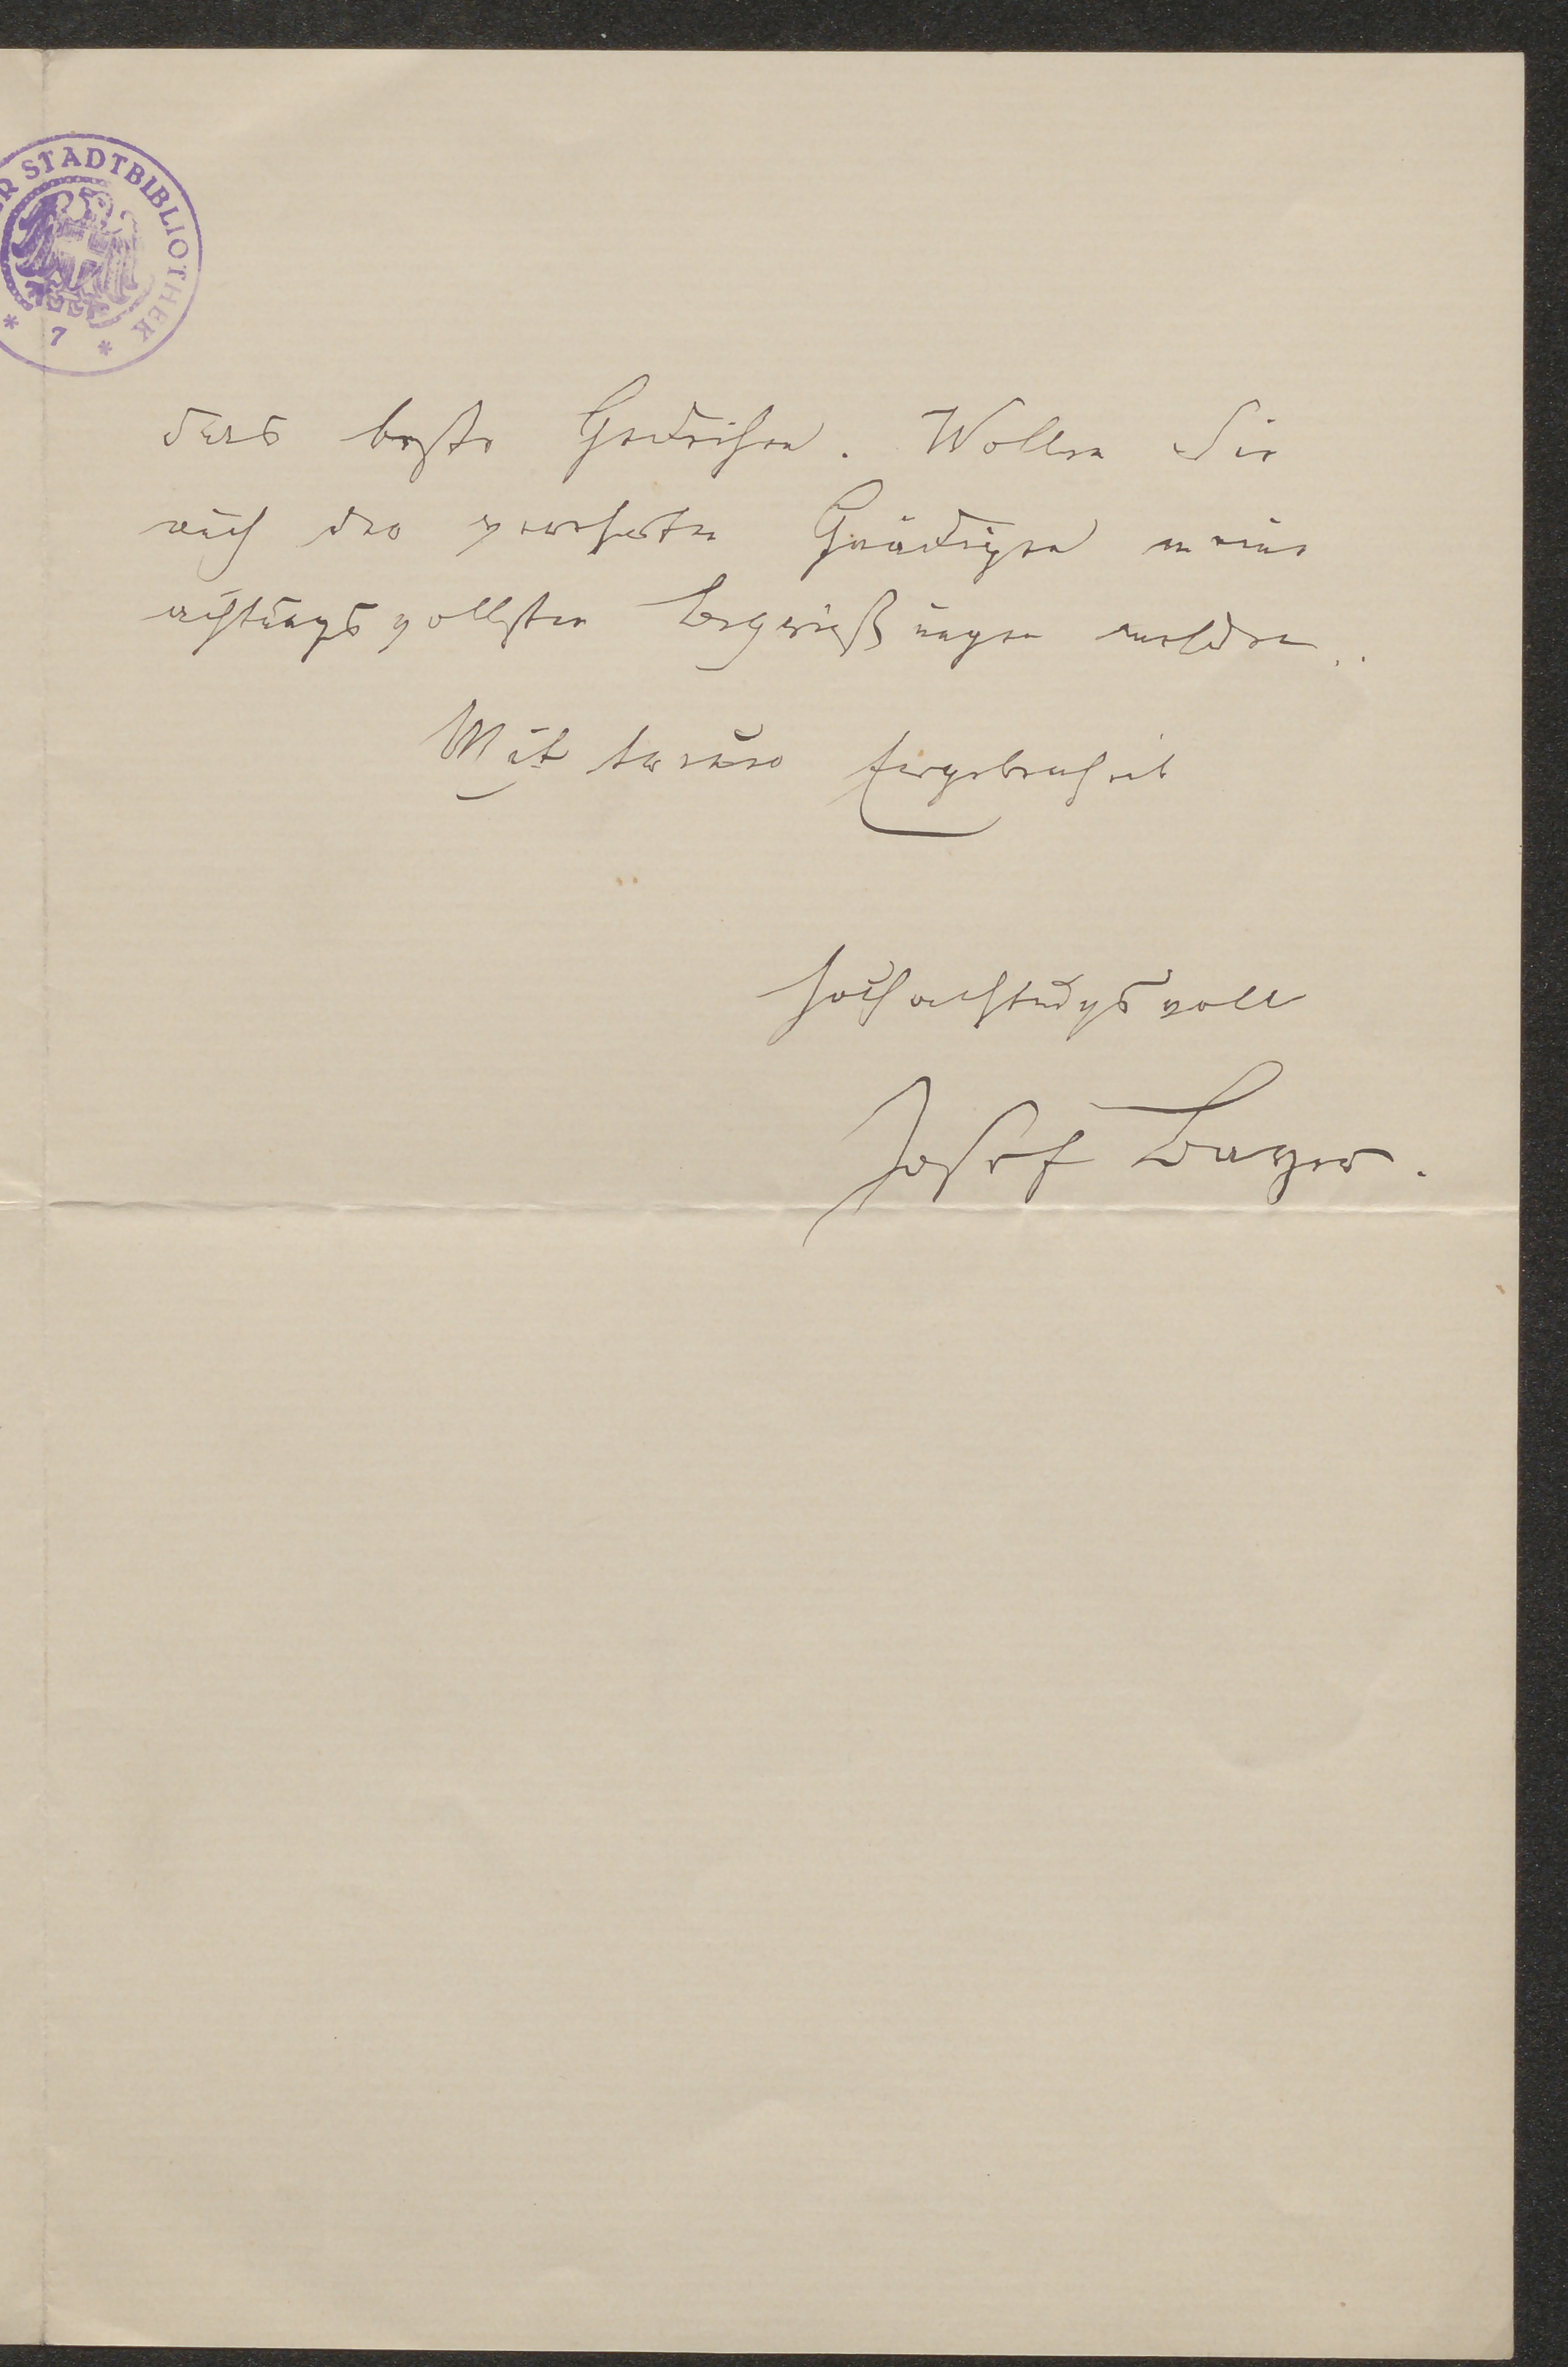 R STADTBIBLIOTHEK
* 7 *
das beste Gedeihen. Wollen Sie
auch der verehrten Gnädigen meine
achtungsvollsten Begrüßungen melden.
Mit treuer Ergebenheit
hochachtungsvoll
Josef Bayer.